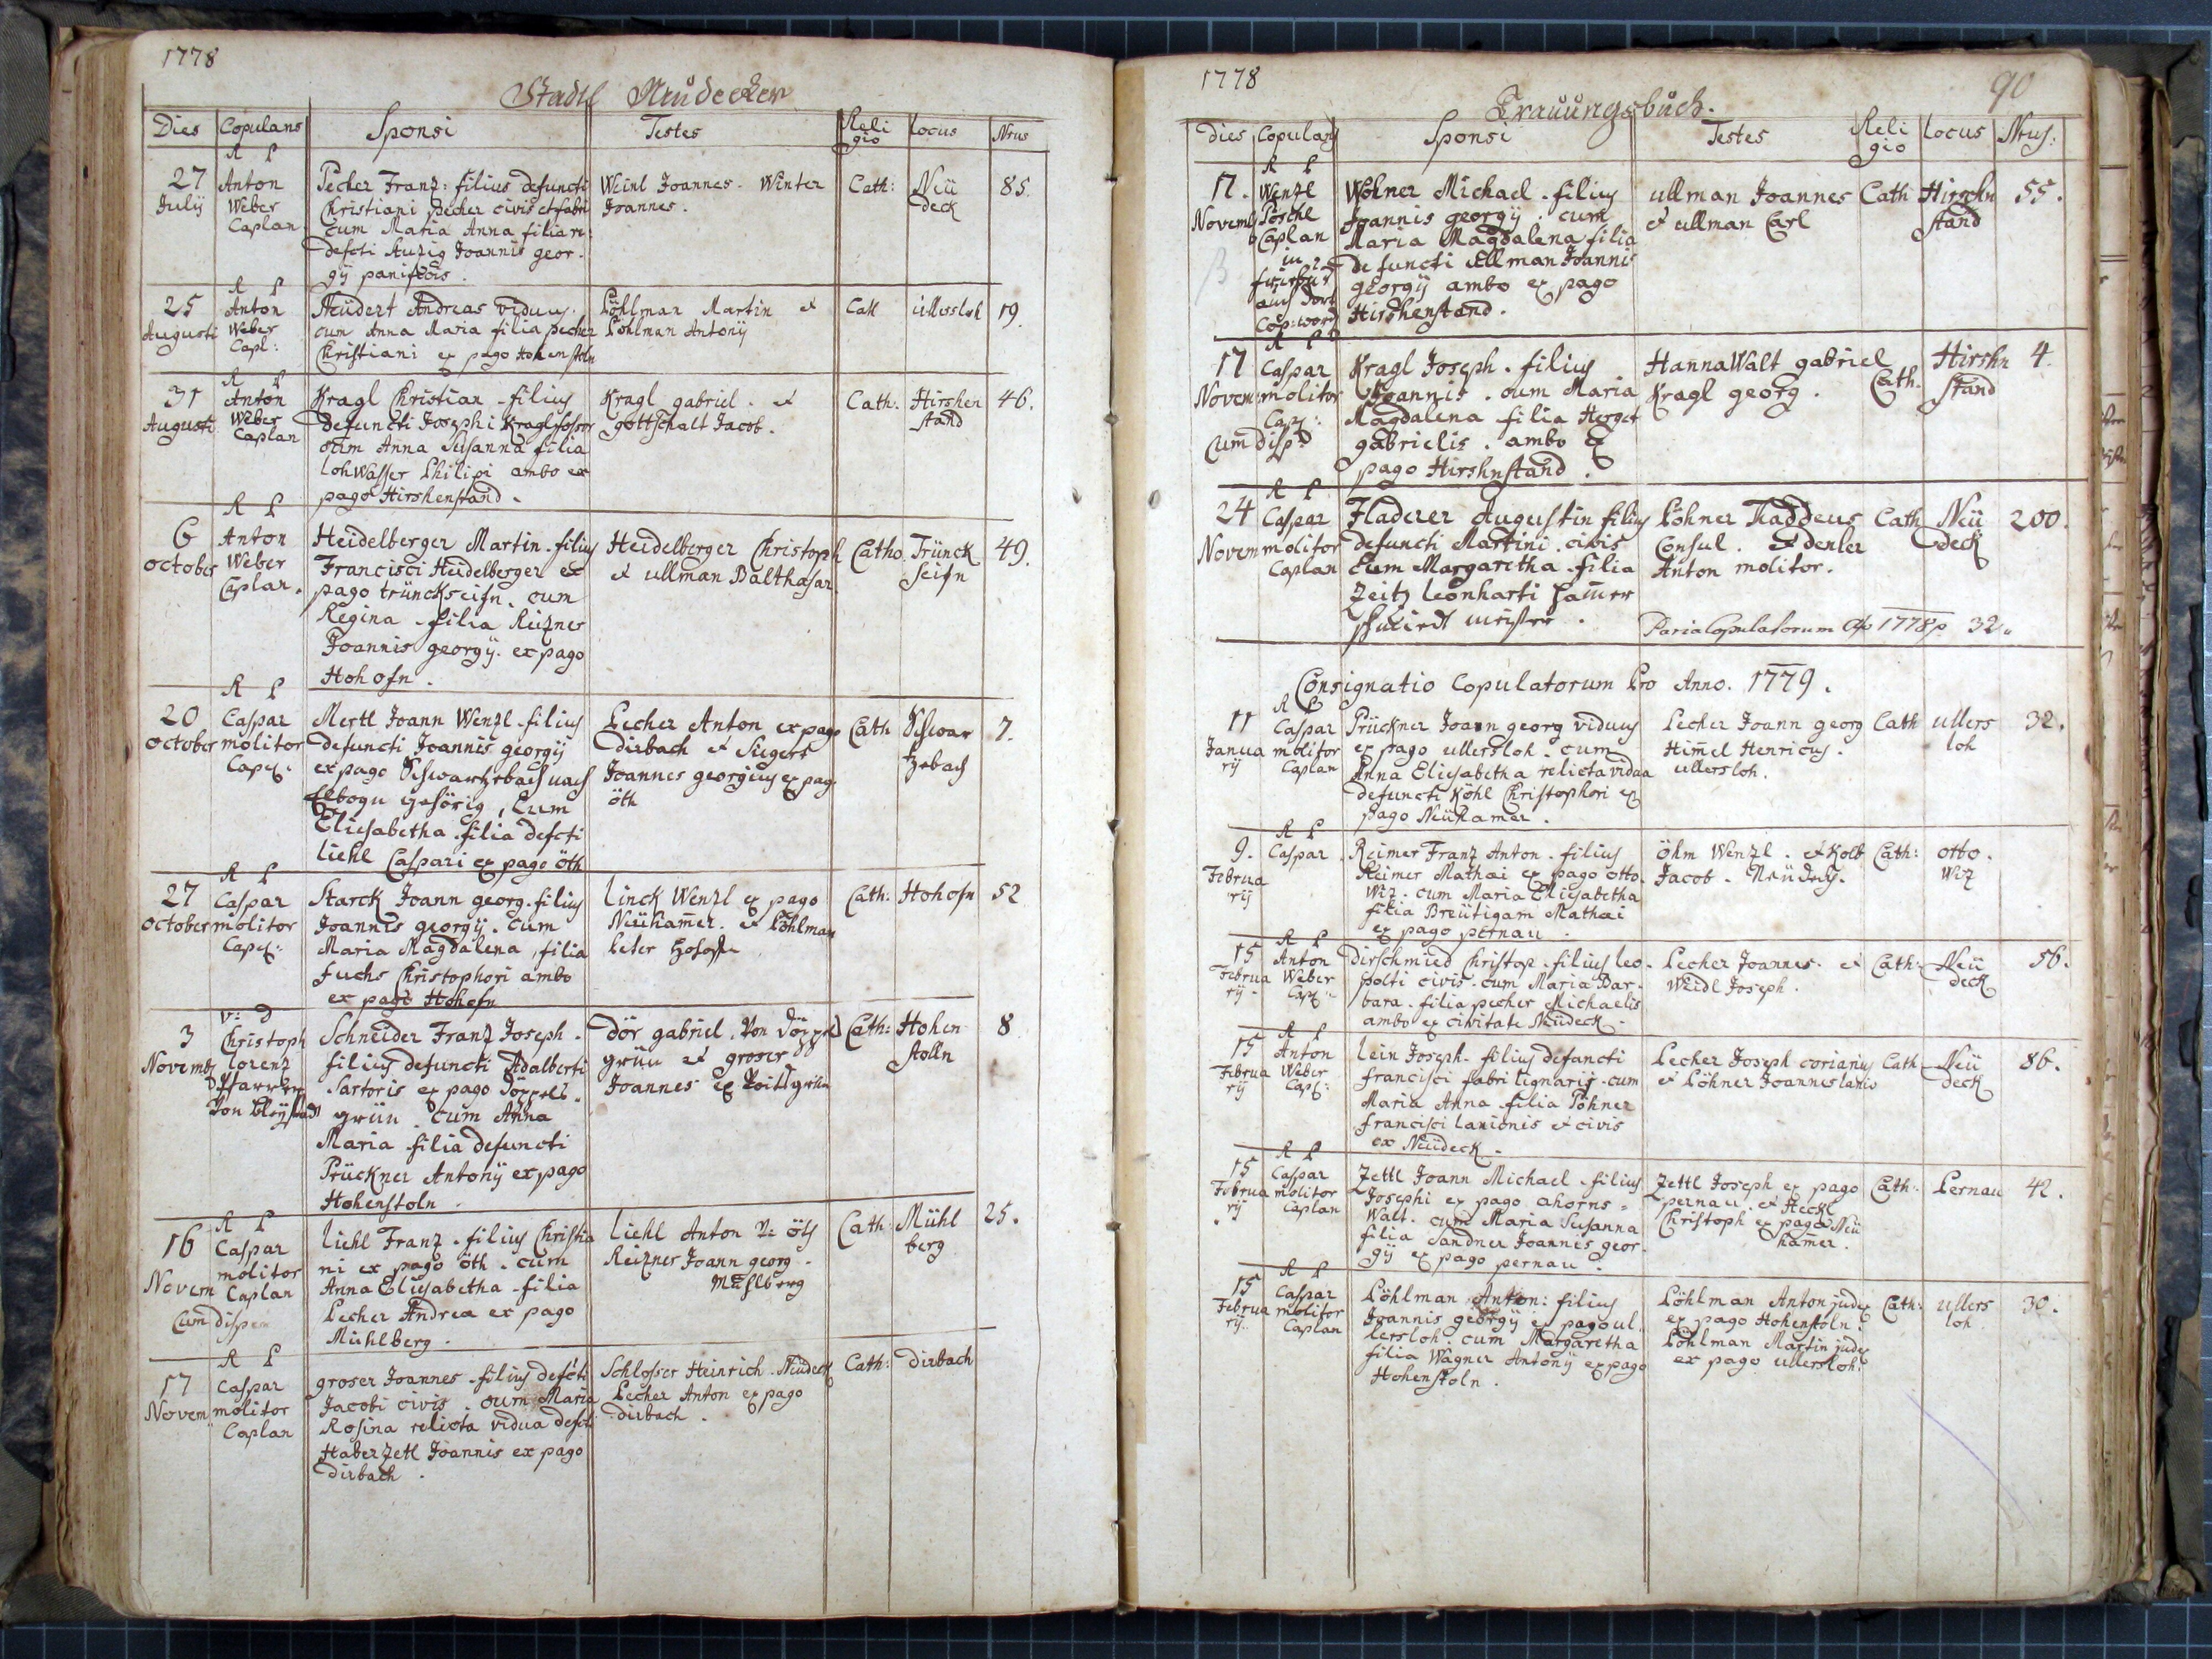 1778
Stadtl Neudecker
Dies Copulans Sponsi Testes Religio locus Nrus
R P
27 July Anton Weber Caplan
Pecher Franz: filius defuncti
Christiani pecher civis et fabri
cum Maria Anna filia re:
defcti Joannis geor-
gÿ
Weinl Joannes. Winter
Joannes.
Cath: Neü deck 85.
R P
25 Augusti Anton Weber Capl:
Neudert Andreas viduus.
cum Anna Maria filia pecher
Christiani ex pago Hohenstoln
Pöhlman Martin et
Pöhlman Antonÿ
Cath ullersloh 19.
R P
31 Augusti Anton Weber Caplan
Kragl Christian filius
defuncti Josephi Kragl fossor
cum Anna Susanna filia
lohWasser Philipi ambo ex
pago Hirshenstand.
Kragl gabriel. et
gottschalt Jacob.
Cath: Hirshen stand 46.
R P
6 october Anton Weber Caplan.
Heidelberger Martin filius
Francisci Heidelberger ex
pago trünckseifn. cum
Regina filia Reizner
Joannis georgÿ. ex pago
Hohofn.
Heidelberger Christoph
et ullman Balthasar
Catho Trünck seifn 49.
R P
20 october Caspar molitor Capl:
Mertl Joann Wenzl filius
defuncti Joannis georgÿ
ex pago Schwartzebach nach
Elbogn gehörig, Cum
Eliesabetha filia defcti
liehl Caspari ex pago öth
Pecher Anton ex pago
dirbach et Siegert
Joannes georgius ex pag
öth
Cath Schwar tzebach 7.
R P
27 october Caspar molitor Capl:
Starck Joann georg filius
Joannis georgÿ. cum
Maria Magdalena, filia
fuchs Christophori ambo
ex pago Hohofn
linck Wenzl ex pago
Neühamer. et Pöhlman
Peter Hohofn
Cath: Hohofn 52
V: D
3 Novemb Christoph lorenz Pfarrer Von Bleÿstadt
Schneider Franz Joseph.
filius defuncti Adalberti
Sartoris ex pago döppels-
grün. cum Anna
Maria filia defuncti
Prückner Antonÿ ex pago
Hohenstoln.
dör gabriel. Von döppels
grün et groser
Joannes ex
Cath: Hohen stolln 8
R P
16 Novem Caspar molitor Caplan
Cum dispen
liehl Franz filius Christia
ni ex pago öth. cum
Anna Eliesabetha filia
Pecher Andrea ex pago
Mühlberg.
liehl Anton V: öth
Reizner Joann georg.
Mühlberg
Cath: Mühl berg 25.
R P
17 Novem Caspar molitor Caplan
groser Joannes filius defcti
Jacobi civis. cum Maria
Rosina relicta vidua defcti
Haberzetl Joannis ex pago
dirbach.
Schlosser Heinrich Neüdeck
Pecher Anton ex pago
dirbach.
Cath: dirbach
1778
90
Trauungsbuch.
Dies Copulans Sponsi Testes Religio locus Nrus:
R P
17. Novemb Wenzl Pöschl Caplan in auch dort Cop: word
Wöhner Michael filius
Joannis georgÿ. cum
Maria Magdalena filia
defuncti Ullman Joannis
georgÿ ambo ex pago
Hirshenstand.
ullman Joannes
et ullman Carl
Cath Hirschn stand 55.
R P
17 Novem Caspar molitor Capl:
Cum disp:
Kragl Joseph. filius
Joannis. cum Maria
Magdalena filia Herget
gabrielis. ambo ex
pago Hirshnstand.
HannaWalt gabriel
Kragl georg.
Cath. Hirshn stand 4.
R P
24 Novem Caspar molitor Caplan
Fladerer Augustin filius
defuncti Martini. civis
Cum Margaretha filia
Zeitz leonharti Hamer
schmiedt meister.
Pöhner Thaddeus
Consul. et denler
Anton molitor.
Cath Neü deck 200.
Paria Copulatorum Ao 1778 32.
Consignatio Copulatorum Pro Anno. 1779.
R P
11 Januarÿ Caspar molitor Caplan
Prückner Joann georg viduus
ex pago ullersloh. cum
Anna Eliesabetha relicta vidua
defuncti Köhl Christophori ex
pago Neühamer.
Pecher Joann georg
Himel Henricus.
ullersloh.
Cath ullers loh 32.
R P
9. Februarÿ Caspar
Reimer Franz Anton. filius
Reimer Mathai ex pago otto
Wiz. cum Maria Eliesabetha
filia Breütigam Mathai
ex pago pernau.
öhm Wenzl. et Kolb
Jacob. Neudeck.
Cath: otto. Wiz
R P
15 Februarÿ Anton Weber Capl:
dirschmied Christop filius leo-
polti civis. cum Maria Bar-
bara filia pecher Michaelis
ambo ex civitate Neüdeck.
Pecher Joannes. et
Weidl Joseph.
Cath: Neü deck 56.
R P
15 Februarÿ Anton Weber Capl:
lein Joseph filius defuncti
francisci fabri lignarÿ. cum
Maria Anna filia Pöhner
francisci lanionis et civis
ex Neüdeck.
Pecher Joseph coriarius
et Pöhner Joannes lanio
Cath Neü deck 86.
R P
15 Februarÿ Caspar molitor Caplan
Zettl Joann Michael filius
Josephi ex pago ahorns-
Walt. cum Maria Susanna
filia Sandner Joannis geor-
gÿ ex pago pernau.
Zettl Joseph ex pago
pernau. et Heckl
Christoph ex pago Neü
hamer.
Cath: Pernau 42.
R P
15 Februarÿ Caspar molitor Caplan
Pöhlman Anton: filius
Joannis georgÿ ex pago ul-
lersloh. cum Margaretha
filia Wagner Antonÿ ex pago
Hohenstoln.
Pöhlman Anton judex
ex pago Hohenstoln.
Pöhlman Martin judex
ex pago ullersloh.
Cath: ullers loh 30.